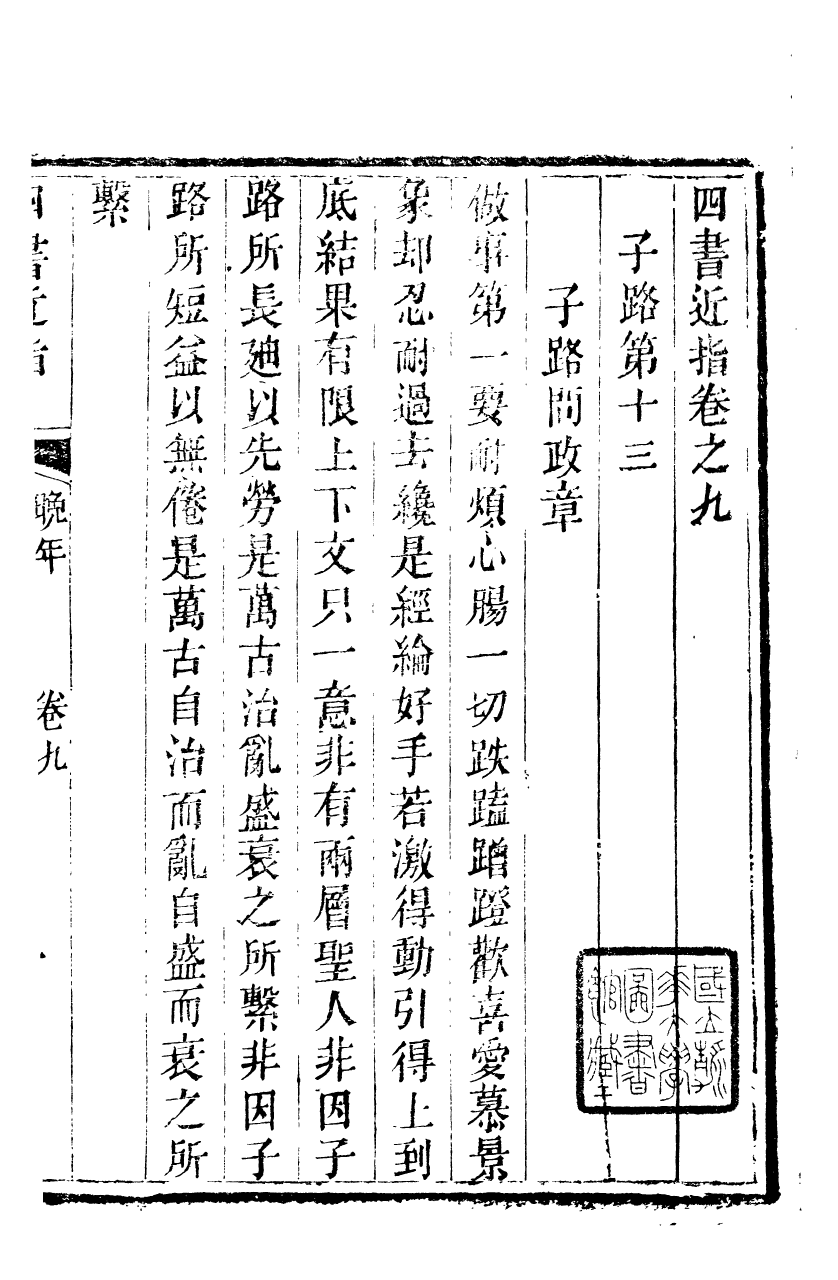 四書近指卷之九
子路第十三
子路問政章
做事第一要耐煩心腸一切跌蹟蹭蹬歡喜愛慕景
象却忍耐過去纔是經綸好手若激得動引得上到
底結果有限上下文只一意非有兩層聖人非因子
路所長廸以先勞是萬古治亂盛衰之所繫非因子
路所短益以無倦是萬古自治而亂自盛而衰之所
繫
四書近指
晚年
卷九
國立清
華大學
圖書
館藏